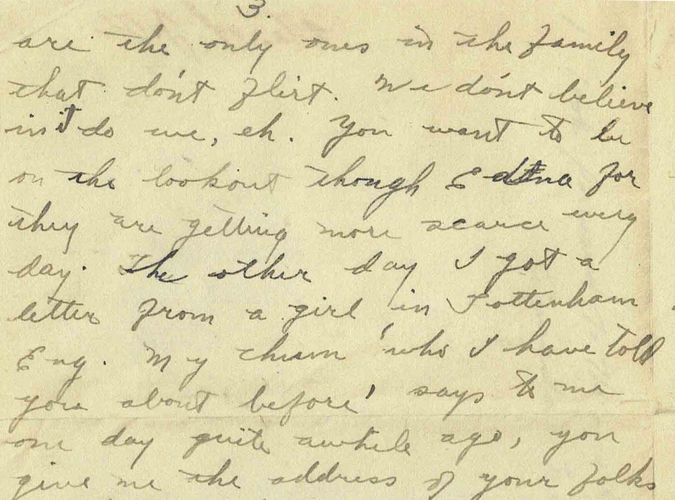 3.
are the only ones in the family
that don't flirt. We don't believe
in it do we, eh. You want to be
on the lookout though Edna for
they are getting more scarce every
day. The other day I got a
letter from a girl in Tottenham
Eng. My chum 'who I have told
you about before' says to me
one day quite awhile ago, you
give me the address of your folks